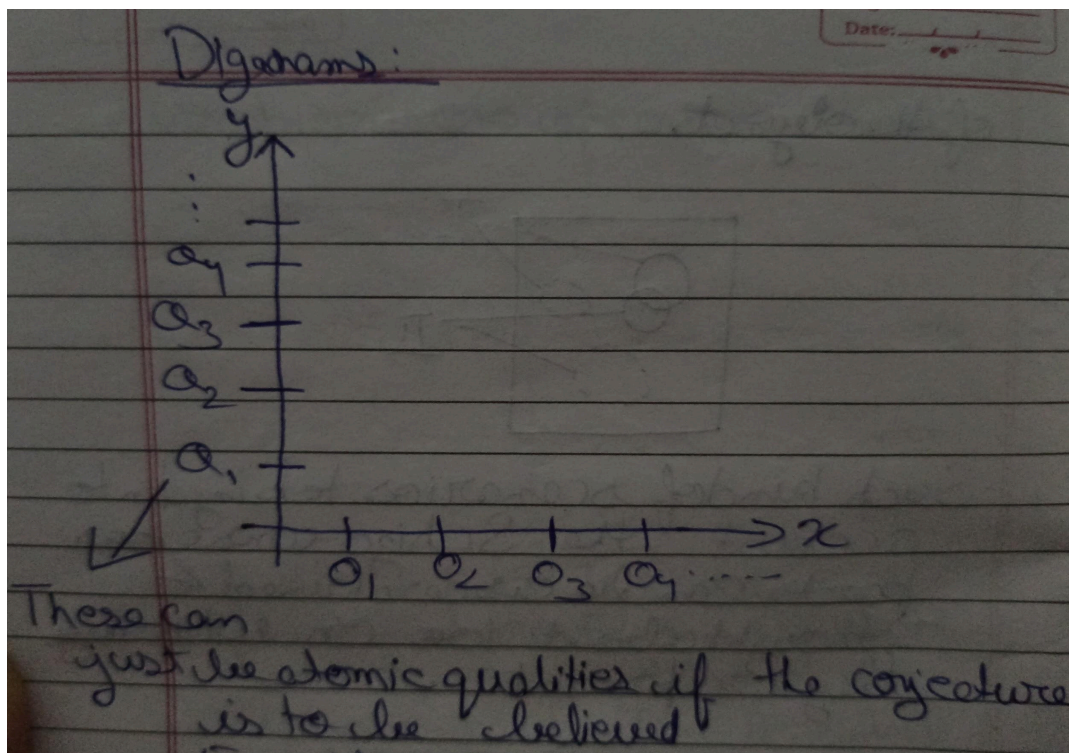 Date:
Digarams:
y
⋮
Q4
Q3
Q2
Q1
x
O1 O2 O3 O4 ......
These can
just be atomic qualities if the conjecture
is to be believed